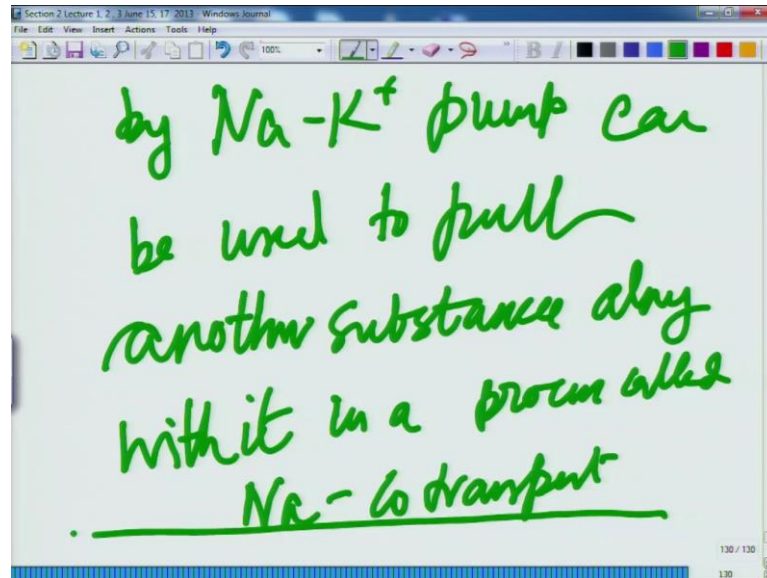 Section 2 Lecture 1, 2 , 3 June 15, 17 2013 - Windows Journal
File Edit View Insert Actions Tools Help
100% B I
by Na-K⁺ pump can
be used to pull
another substance along
with it in a process called
Na-Cotransport
130 / 130
130